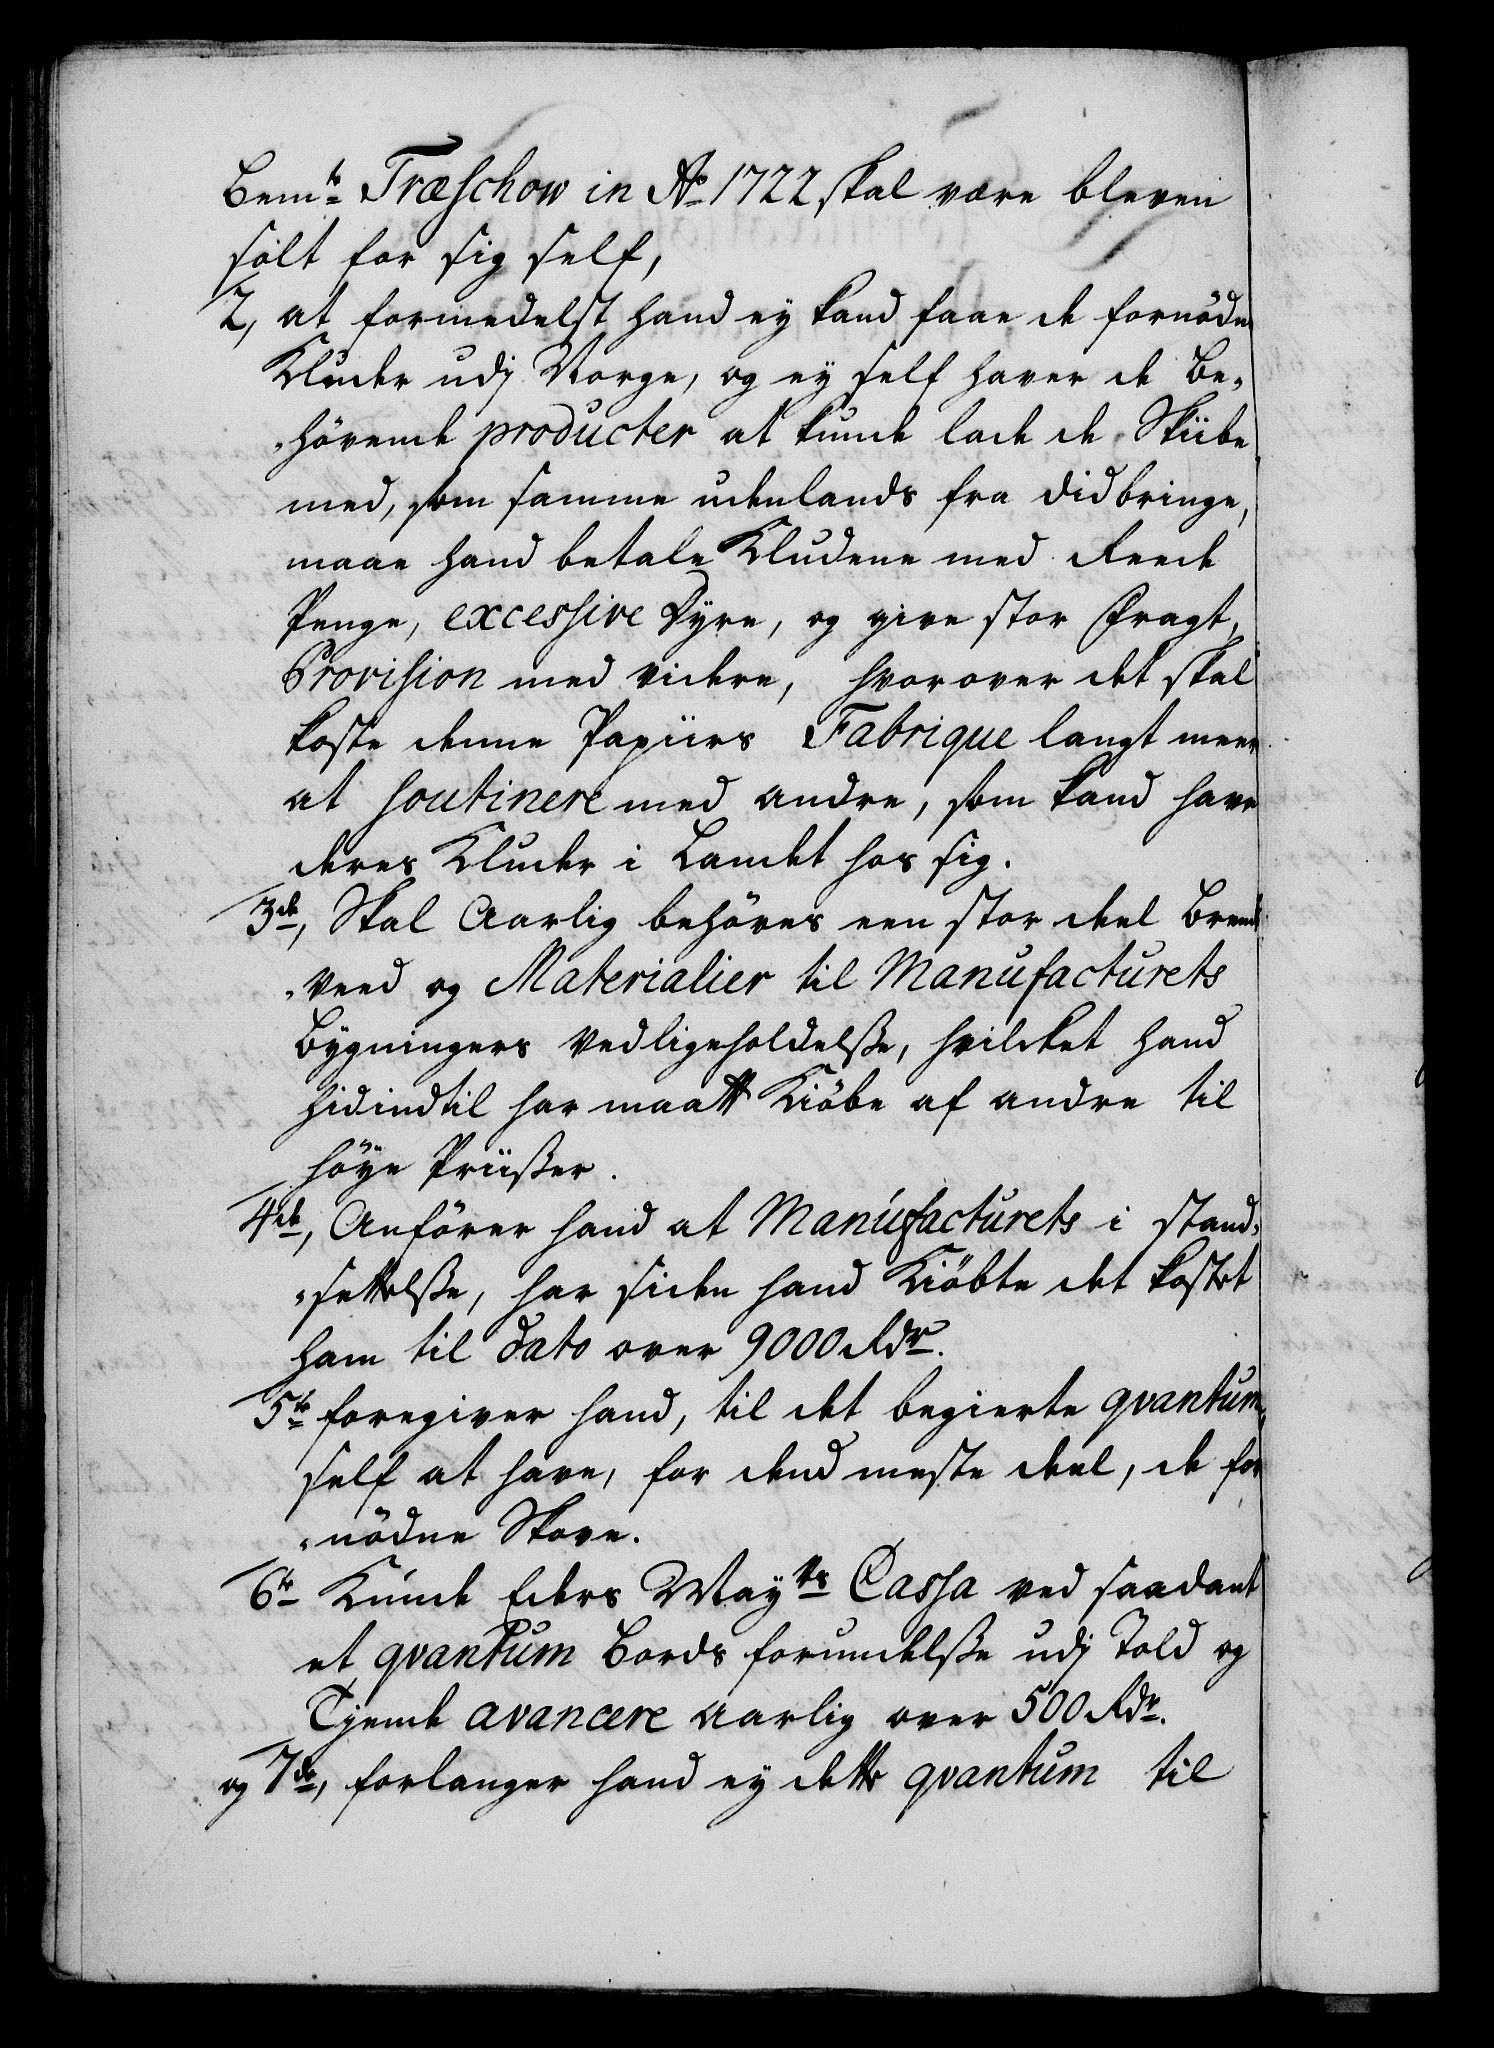 Bemte Træschow in Ao 1722 skal være bleven
solt for sig self,
2, at formedelst hand ey kand faae de fornödne
Kluder udj Norge, og ey self haver de be-
-hövende producter at kunde lade de Skiibe
med, som samme udenlands fra did bringe,
maae hand betale Kludene med Reede
Penge, excessive Dyre, og give stor Fragt,
Provision med videre, hvorover det skal
koste denne Papiirs Fabrique langt meer
at soutinere med andre, som kand have
deres Kluder i Landet hos sig.
3de, Skal Aarlig behöves een stor deel Brende
-veed og Materialier til Manufacturets
Bygningers Vedligeholdelsse, hvilcket hand
hidindtil har maatt Kiöbe af andre til
höye Priisser.
4de, Anförer hand at Manufacturets i stand-
-settelsse, har siden hand Kiöbte det kostet
ham til dato over 9000 Rdr.
5te foregiver hand, til det begierte qvantum,
self at have, for dend meste deel, de for
-nödne Skove.
6te Kunde Eders Mayts Cassa ved saadant
et qvantum Bords forundelsse udj Told og
Tjende avancere aarlig over 500 Rdr.
og 7de, forlanger hand ey dette qvantum til